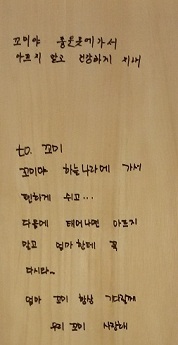 꼬미야 좋은곳에가서
아프지 말고 건강하게 지내
to. 꼬미
꼬미야 하늘나라에 가서
편하게 쉬고...
다음에 태어나면 아프지
말고 엄마한테 꼭
다시와~
엄마 꼬미 항상 기다릴게
우리 꼬미 사랑해